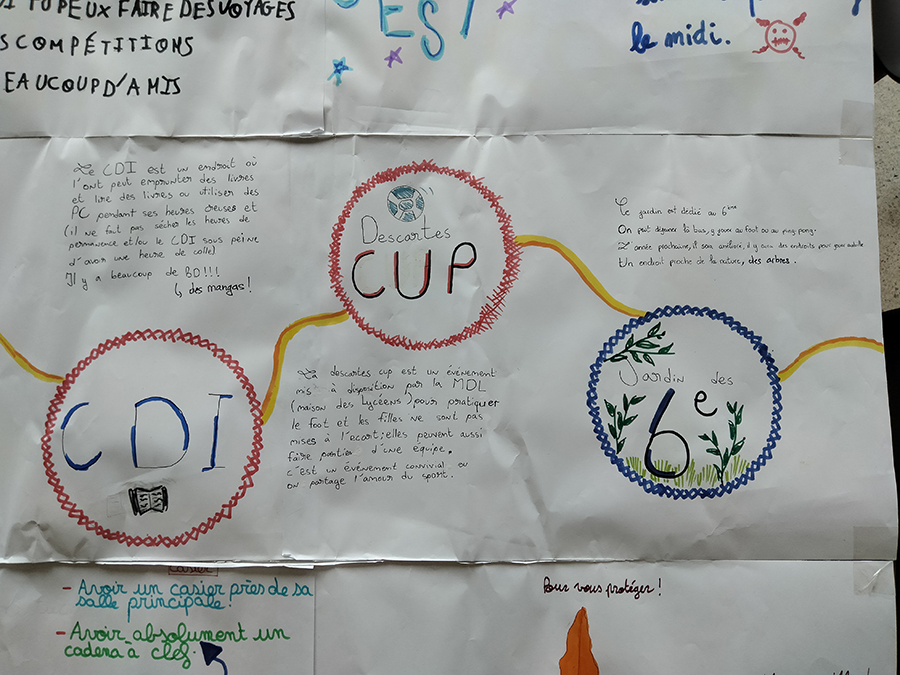 TU PEUX FAIRE DES VOYAGES
S COMPÉTITIONS
EAUCOUP D'AMIS
EST
le midi.
Le CDI est un endroit où
l'ont peut emprunter des livres
et lire des livres ou utiliser des
PC pendant ses heures creuses et
(il ne faut pas sécher les heures de
permanence et/ou le CDI sous peine
d'avoir une heure de colle)
Il y a beaucoup de BD!!!
↳ des mangas!
CDI
Descartes
CUP
La descartes cup est un événement
mis à disposition par la MDL
(maison des Lycéens) pour pratiquer
le foot et les filles ne sont pas
mises à l'ecart; elles peuvent aussi
faire parties d'une équipe.
c'est un événement convivial ou
on partage l'amour du sport.
Ce jardin est dédié au 6ème
On peut déjeuner là bas, y jouer au foot ou au ping pong.
L'année prochaine, il sera amélioré, il y aura des endroits pour
Un endroit proche de la nature, des arbres.
Jardin des
6e
casier
- Avoir un casier près de sa
salle principale!
- Avoir absolument un
cadena à clef.
Pour vous protéger!